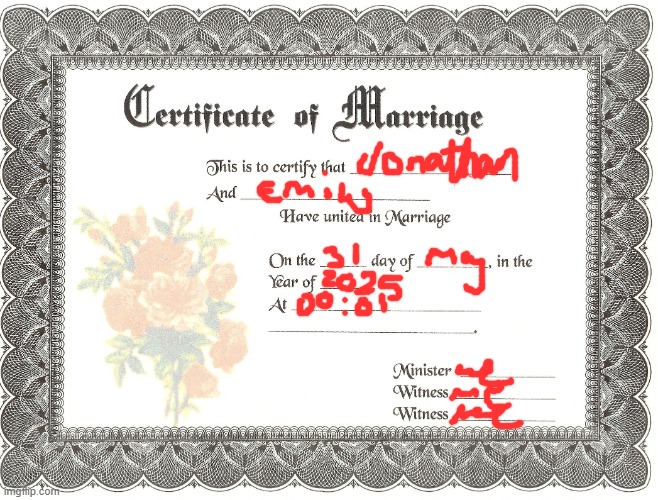 Certificate of Marriage
This is to certify that Jonathan
And Emily
Have united in Marriage
On the 31 day of May, in the
Year of 2025
At 00:01
Minister
Witness
Witness
imgflip.com